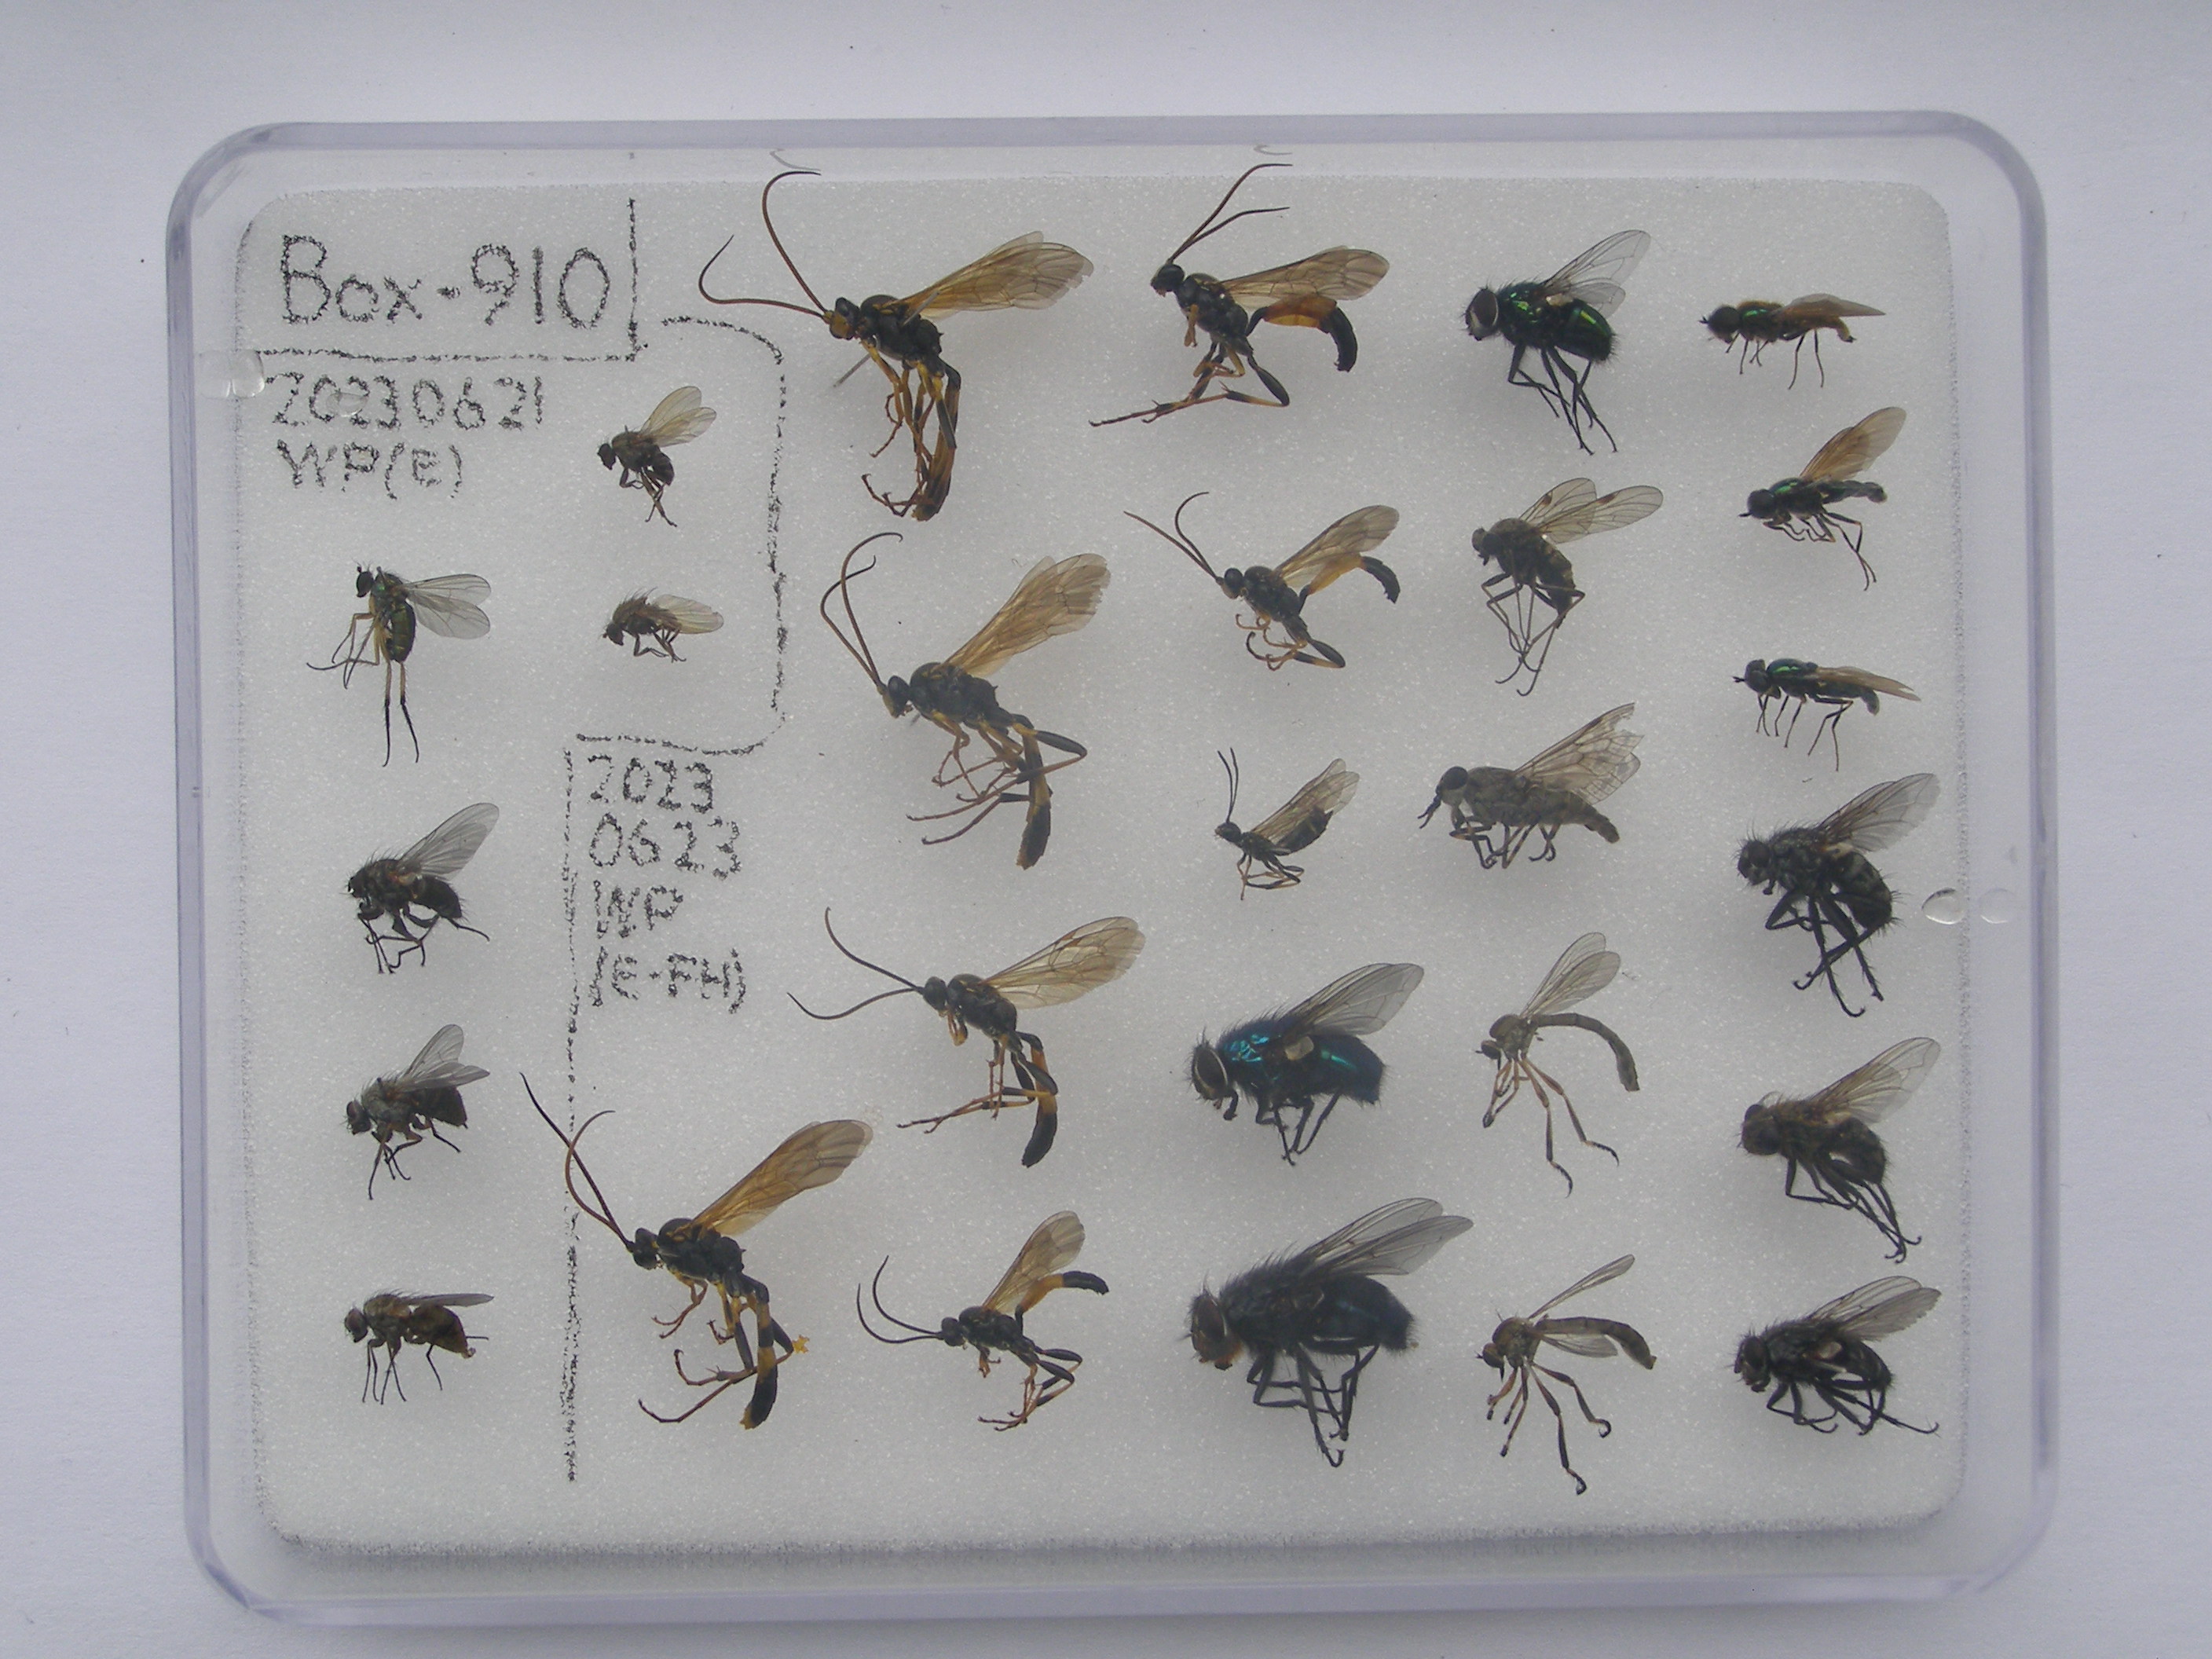 Box-910
20230621
WP(E)
2023
0623
WP
(E-FH)